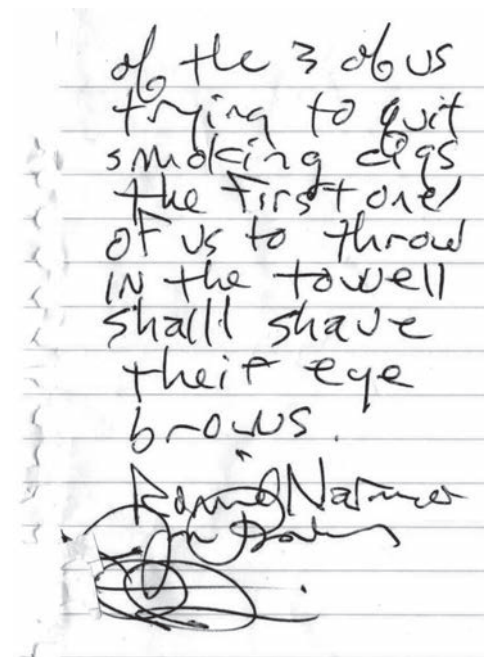 of the 3 of us
trying to quit
smoking cigs
the first one
of us to throw
IN the towell
shall shave
their eye
brows.